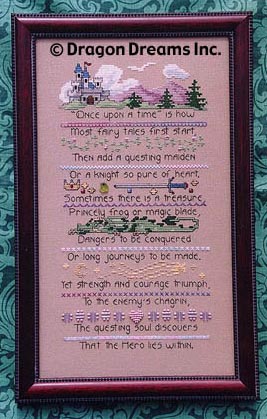 © Dragon Dreams Inc.
"Once upon a time" is how
Most fairy tales first start,
Then add a questing maiden
Or a knight so pure of heart.
Sometimes there is a treasure,
Princely frog or magic blade,
Dangers to be conquered
Or long journeys to be made.
Yet strength and courage triumph,
To the enemy's chagrin,
The questing soul discovers
That the Hero lies within.